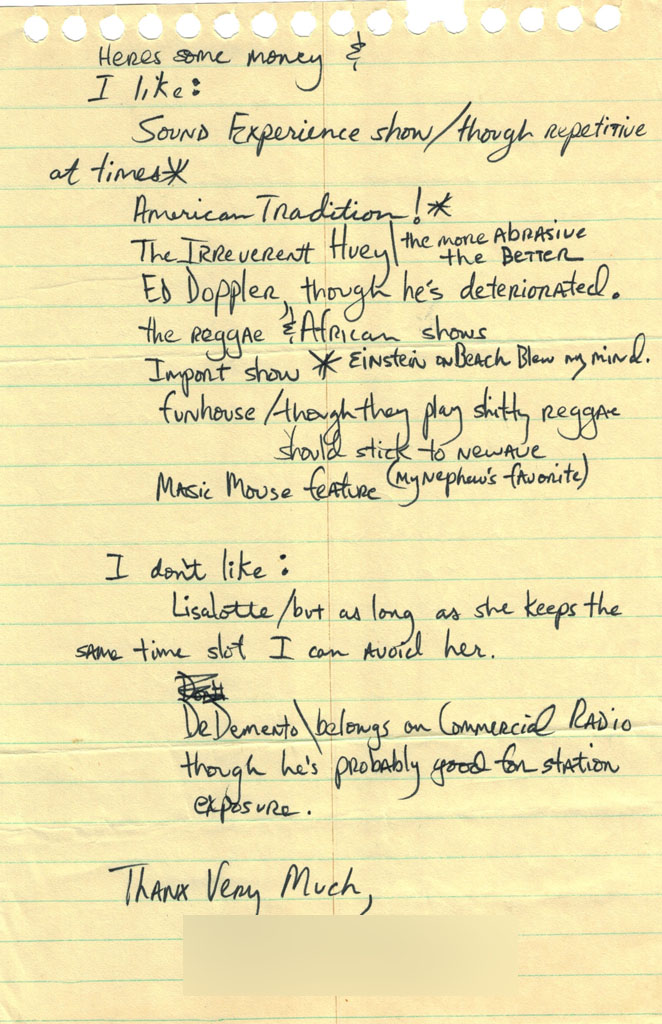 Heres some money &
I like:
Sound Experience show/though repetitive
at times*
American Tradition!*
The Irreverent Huey/the more Abrasive
the Better
Ed Doppler, though he's deteriorated.
the reggae & African shows
Import show * Einstein on Beach Blew my mind.
funhouse/though they play shitty reggae
should stick to Newave
Magic Mouse feature (my nephew's favorite)
I don't like:
Lisalotte/but as long as she keeps the
same time slot I can avoid her.
DrDemento\belongs on Commercial Radio
though he's probably good for station
exposure.
Thanx Very Much,